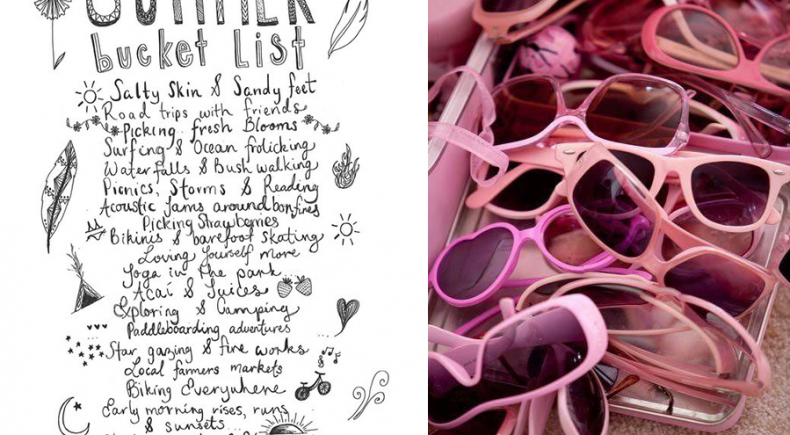 SUMMER
bucket List
Salty Skin & Sandy feet
Road trips with friends
Picking fresh Blooms
Surfing & Ocean frolicking
Waterfalls & Bush walking
Picnics, Storms & Reading
Acoustic Jams around bonfires
Picking Strawberries
Bikinis & barefoot skating
Loving Yourself more
Yoga in the park
Acai & Juices
Exploring & Camping
Paddleboarding adventures
Star gazing & fire works
Local farmers markets
Biking Everywhere
Early morning rises, runs
& sunsets